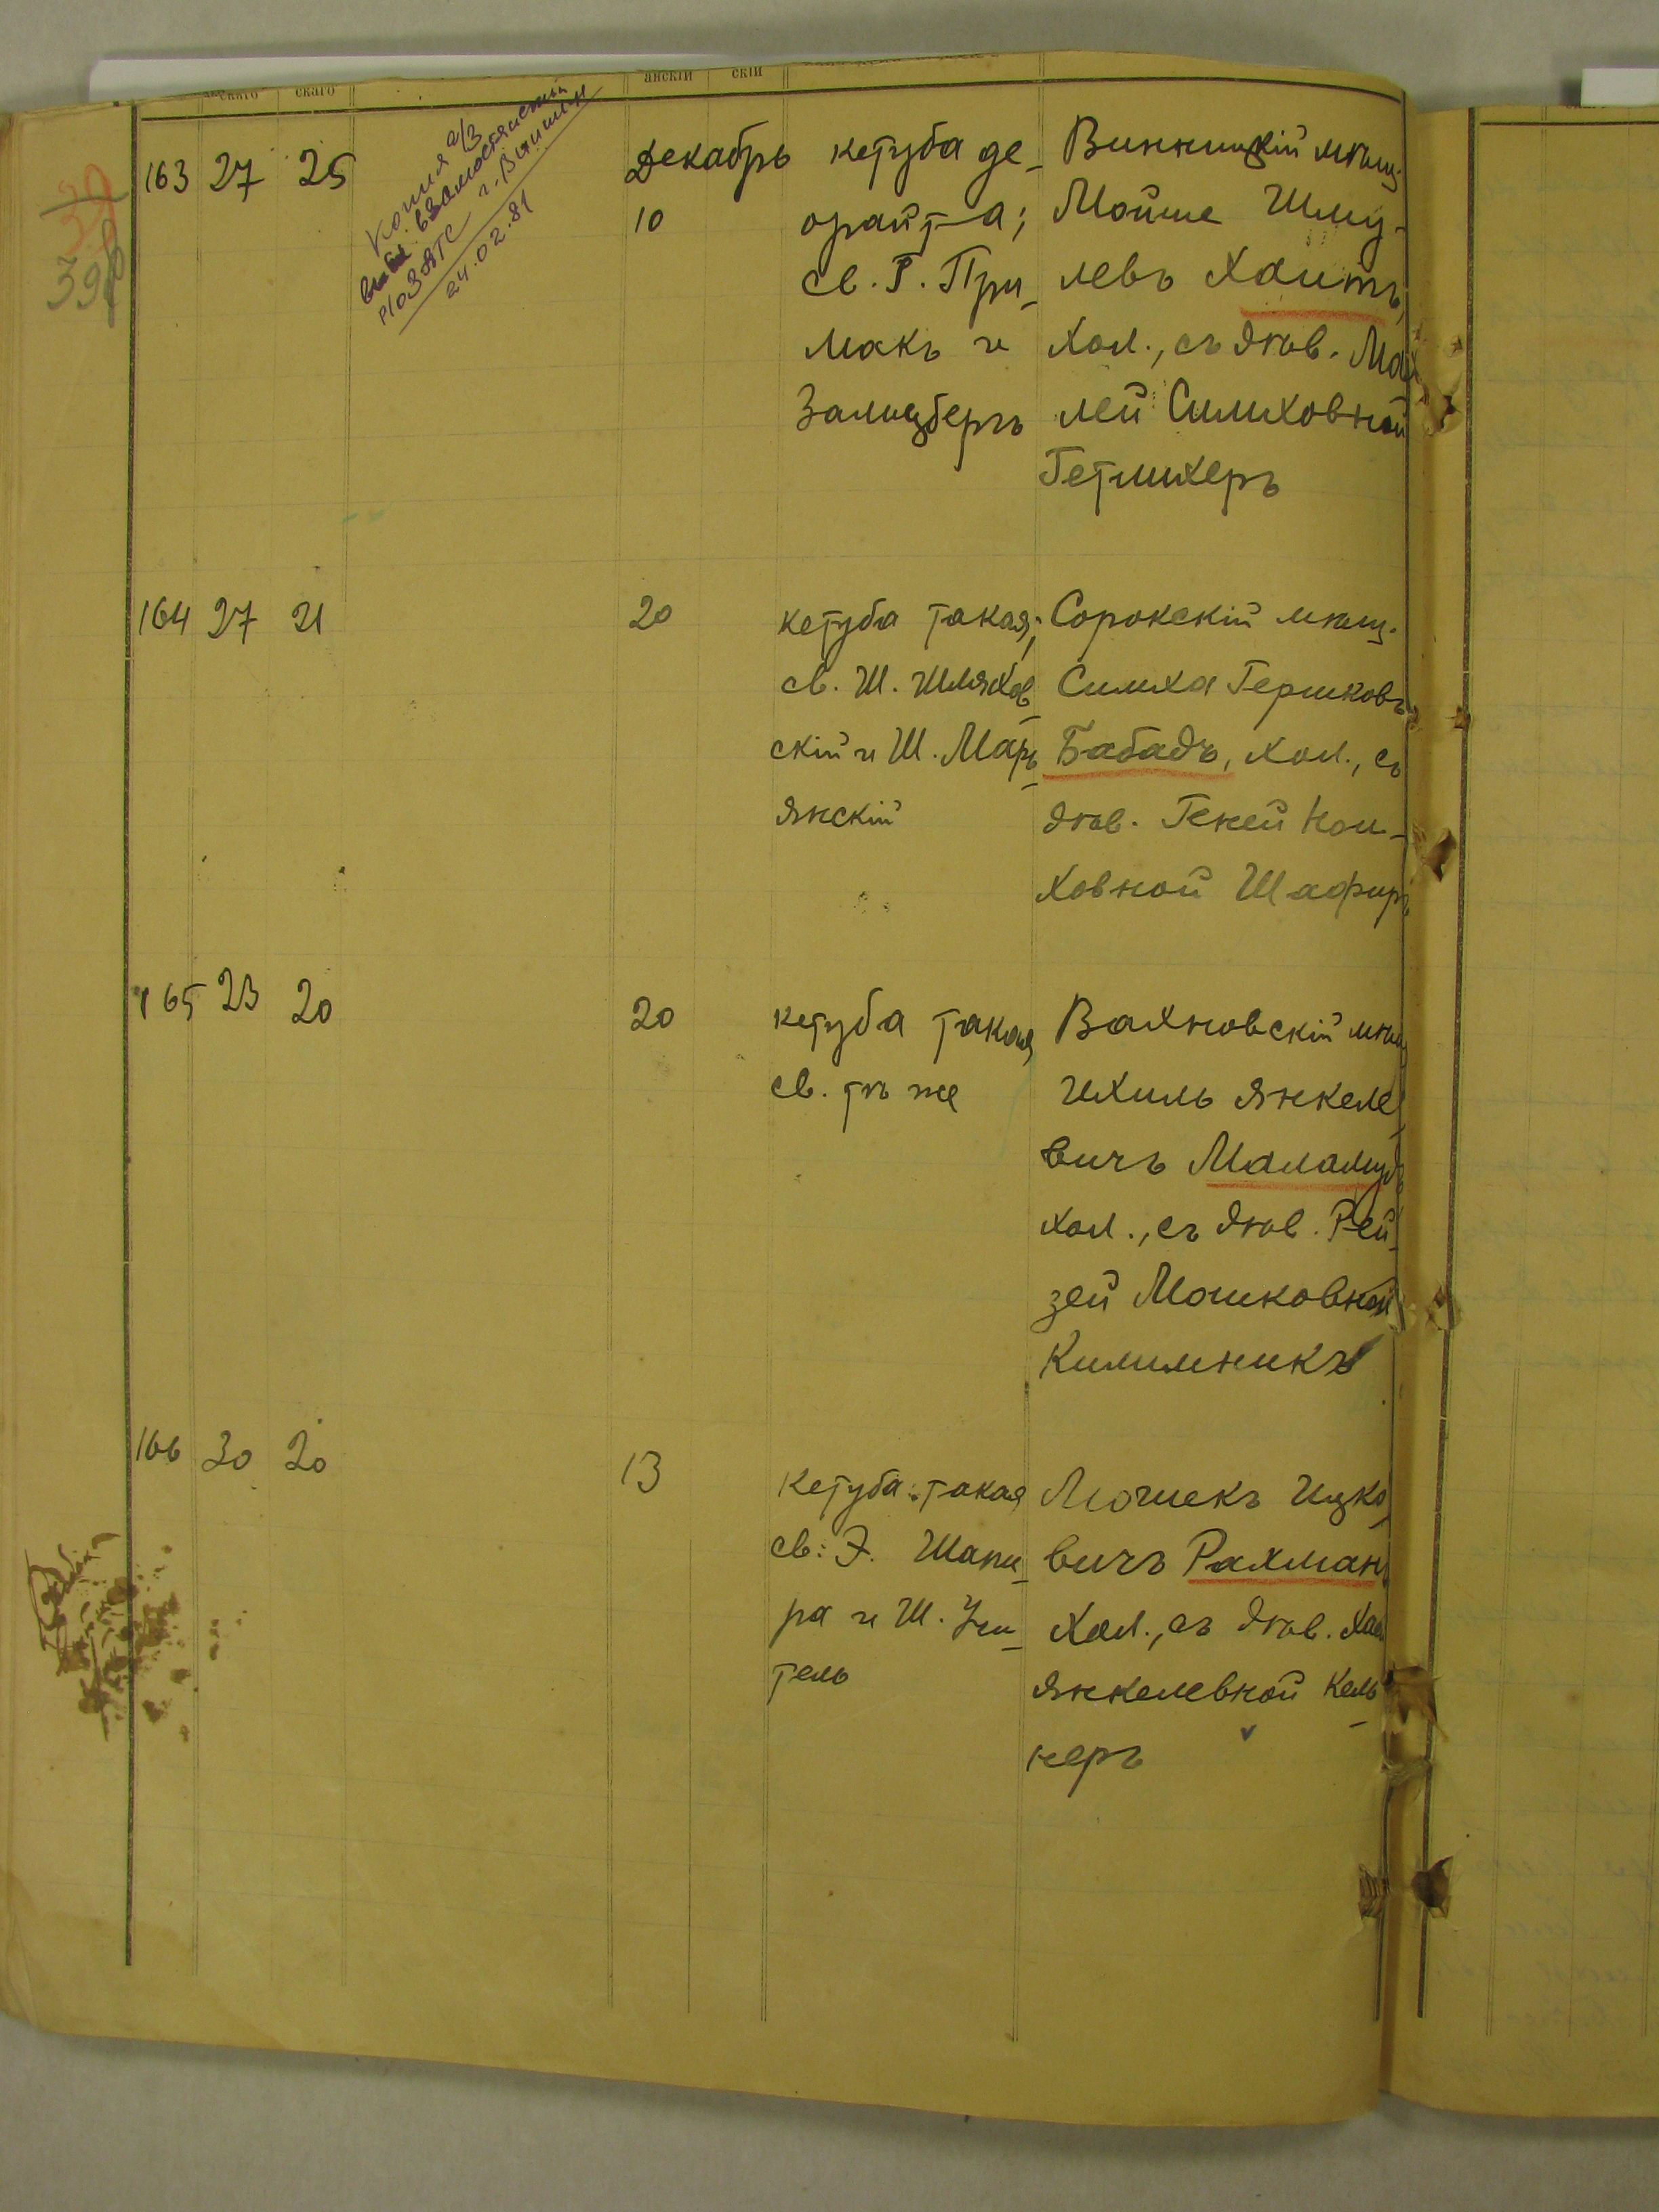 скаго
анскій
скій
39
398
Копия а/з
г. Винницы
24.02.81
163 27 25
Декабрь
10
кетуба де-
орайта;
св. Г. При-
макъ и
Залицбергъ
Винницкій мѣщ.
Мойше Шму-
левъ Хаитъ,
хол., съ дѣв. Ма-
лей Симховной
Гетлихеръ
164 27 21
20
кетуба такая;
св. Ш. Шляхов-
скій и Ш. Марь-
янскій
Сорокскій мѣщ.
Симха Гершковъ
Бабадъ, хол., съ
дѣв. Геней Нои-
ховной Шафиръ
165 23 20
20
кетуба такая,
св. тѣ же
Вахновскій мѣщ.
Ихиль Янкеле-
вичъ Маламудъ
хол., съ дѣв. Рей-
зей Мошковной
Килимникъ
166 30 20
13
кетуба такая
св: Э. Шапи-
ра и Ш. Учи-
тель
Мошекъ Ицко-
вичъ Рахманъ,
хол., съ дѣв. Хаей
Янкелевной Кель-
неръ